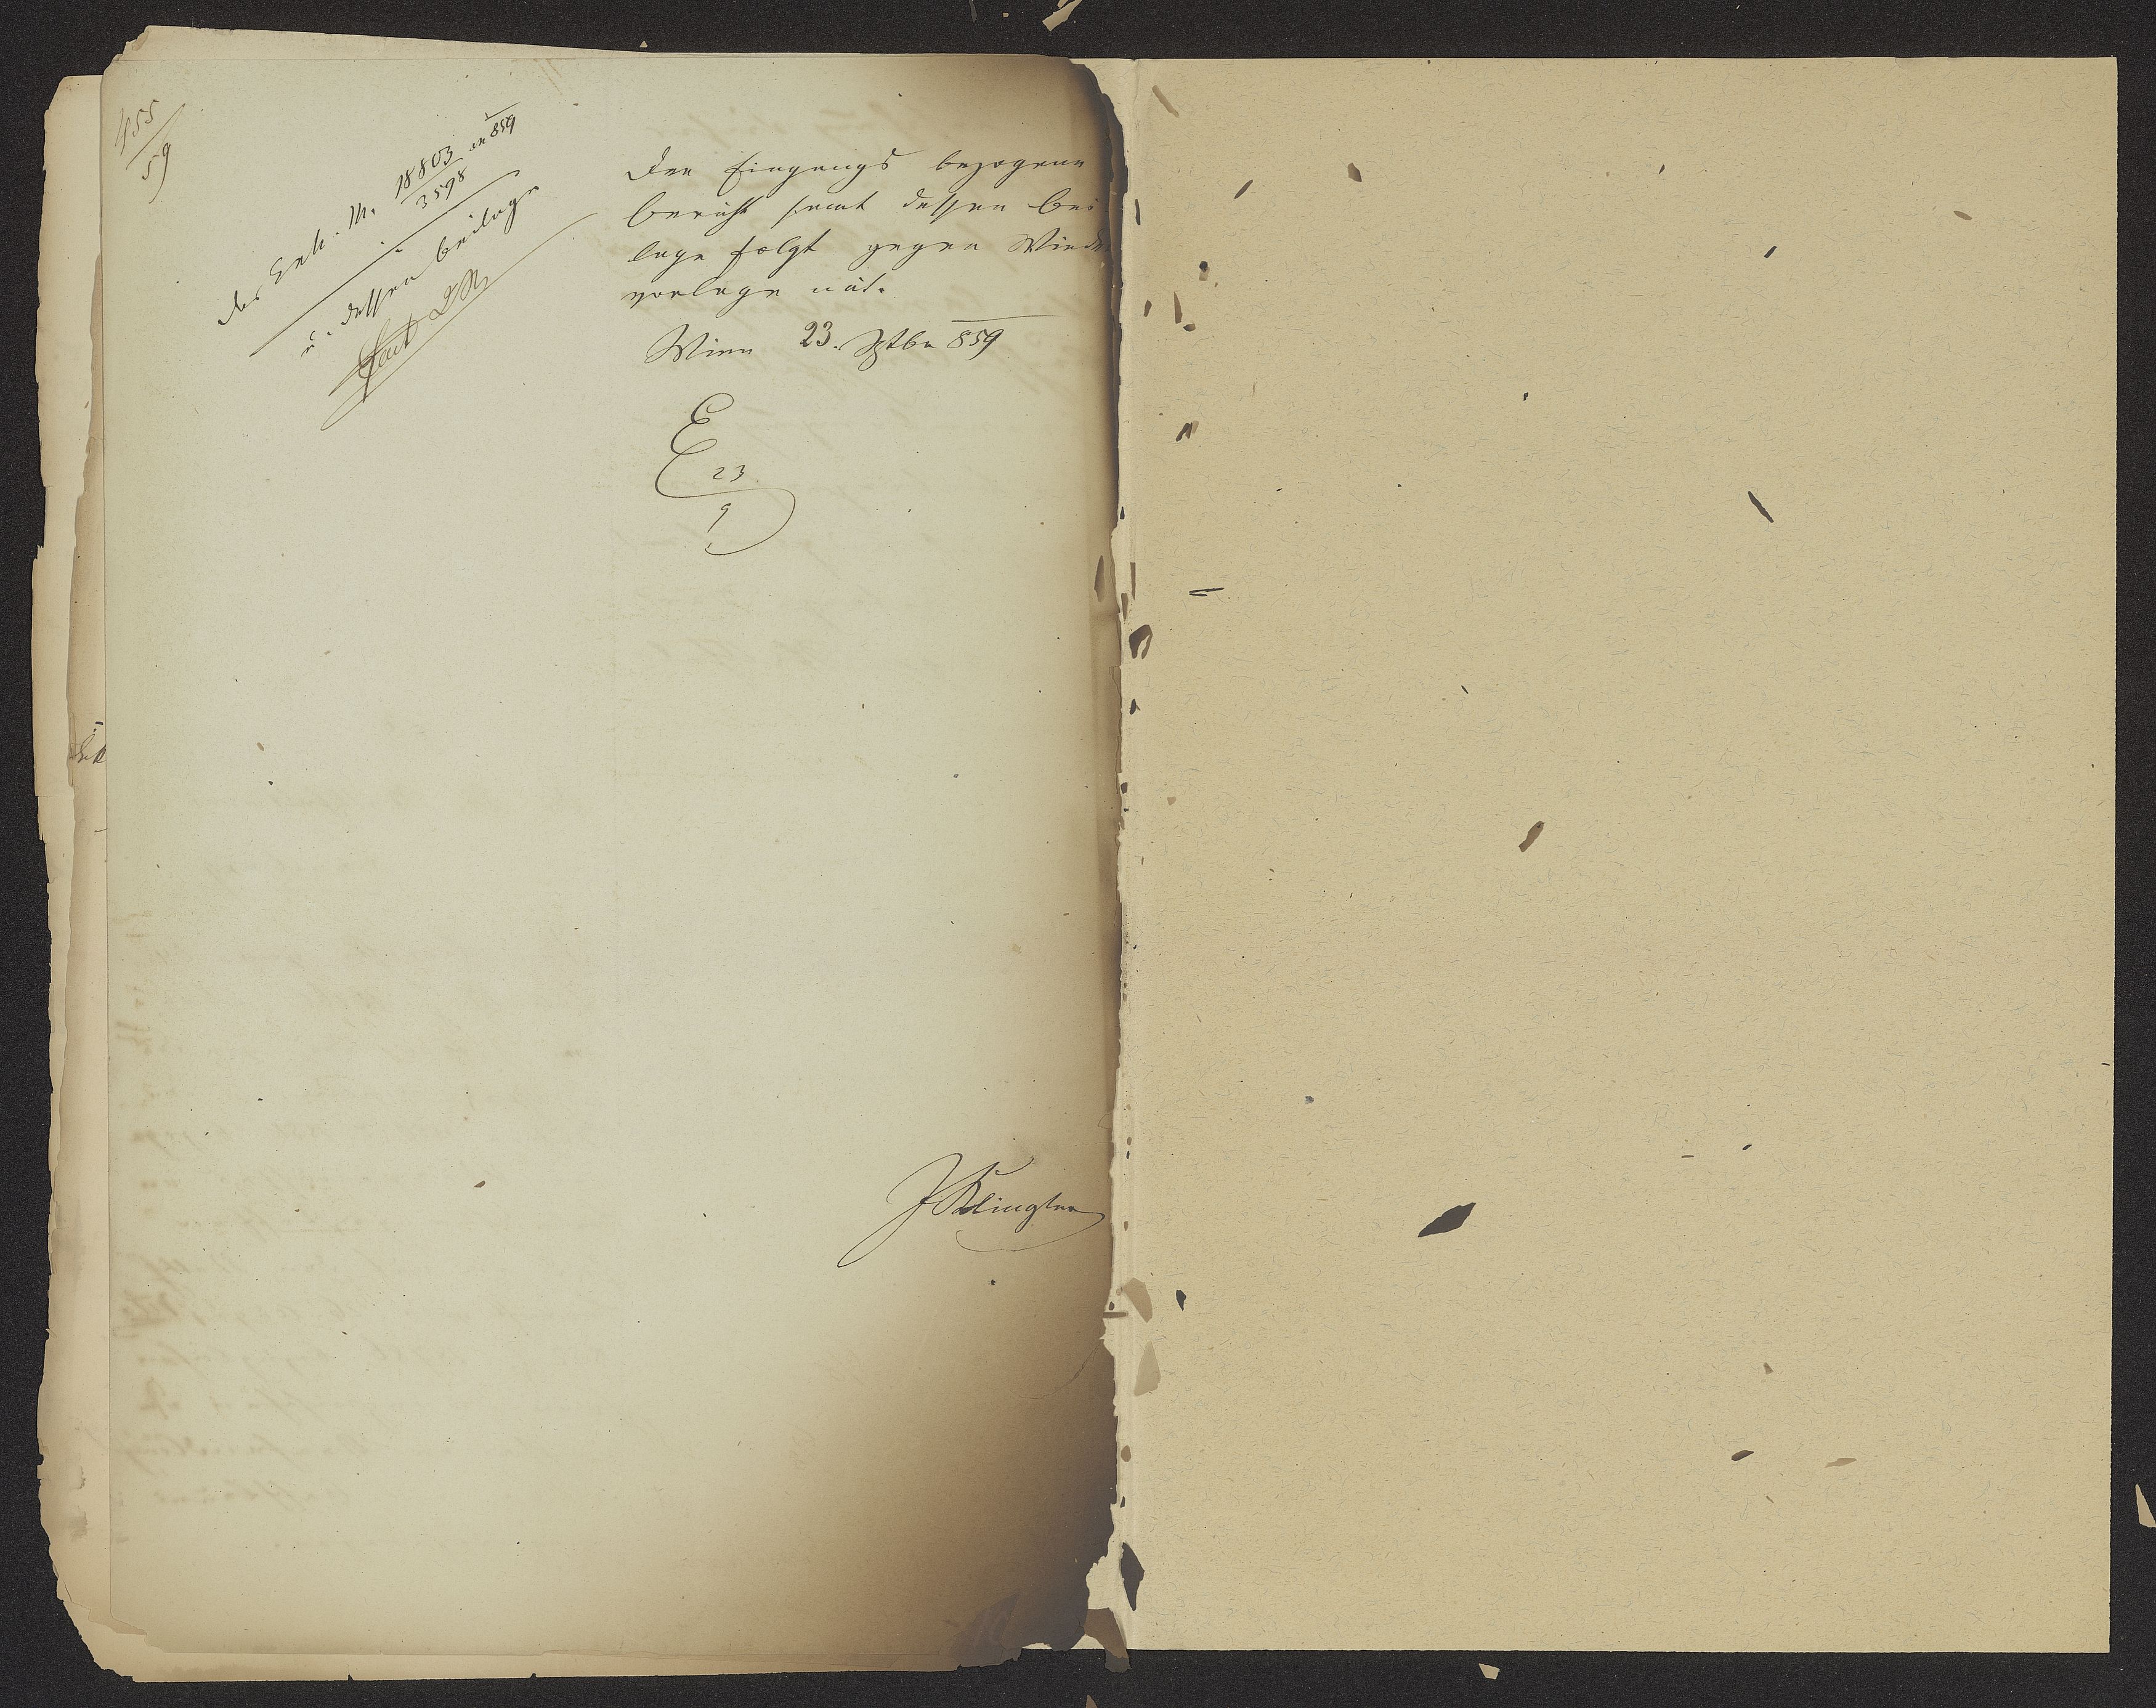 455
59
des Exh. N. 18803 de 859
3598
u. dessen Beilage
Der Eingangs bezogene
Bericht samt dessen Bei
lage folgt gegen Wieder
vorlage mit.
Wien 23. Sptbr 859
E
23
9
JKlingler